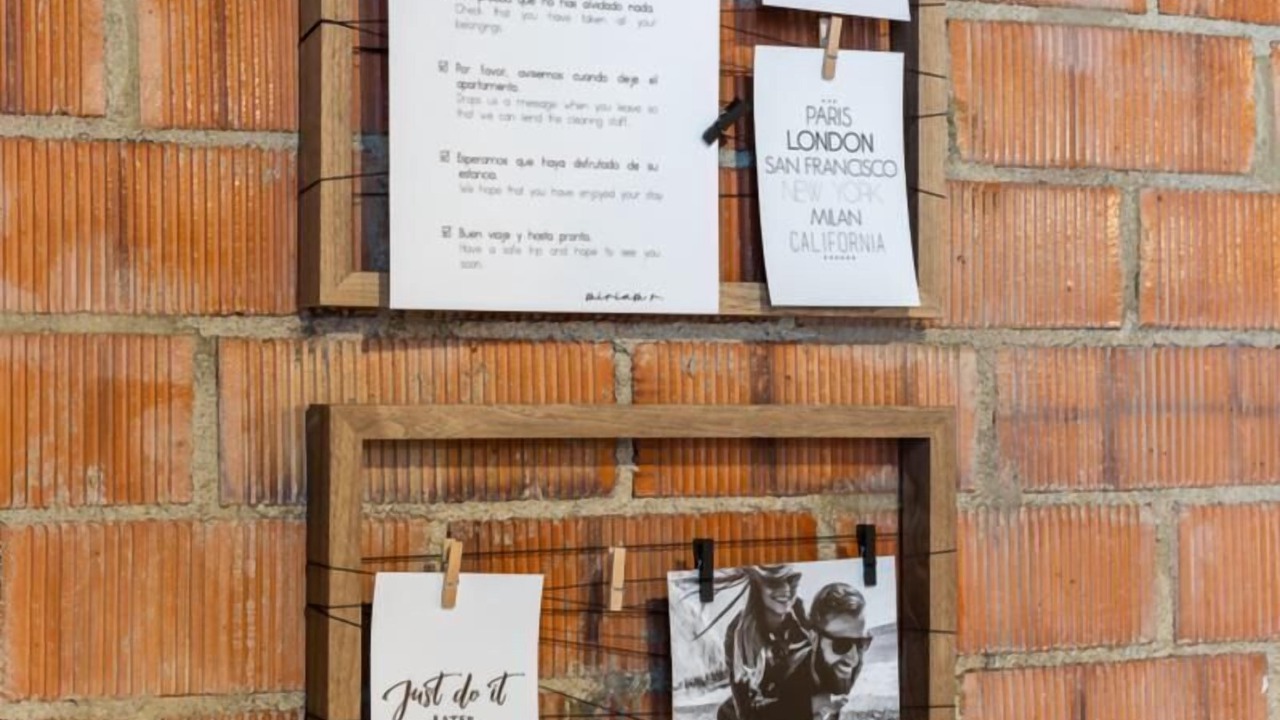 que no has olvidado nada.
Check that you have taken all your
belongings.
Por favor, avisemos cuando deje el
apartamento.
Drops us a message when you leave so
that we can send the cleaning staff.
Esperamos que haya disfrutado de su
estancia.
We hope that you have enjoyed your stay
Buen viaje y hasta pronto.
Have a safe trip and hope to see you
soon.
miriam r.
PARIS
LONDON
SAN FRANCISCO
NEW YORK
MILAN
CALIFORNIA
Just do it
LATER